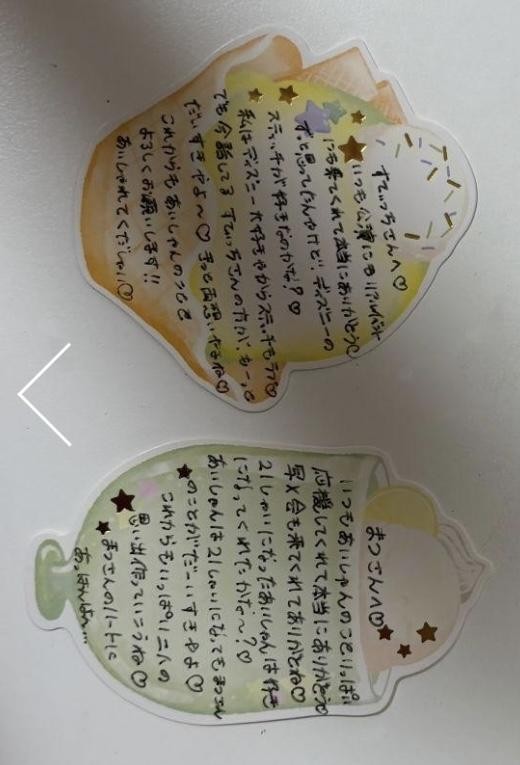 すてぃっちさんへ♡
いつも公演にもリアルイベント
にも来てくれて本当にありがとう♡
ずっと思ってたんやけど!ディズニーの
スティッチが好きなのかな?♡
私はディズニー大好きやからスティッチもラブ♡
でも今話してる すてぃっちさんの方が、もーっと
だいすきやよ〜♡ きっと両想いだよね♡
これからもあいしゃんのことを
よろしくお願いします!!
あいしゃれてくだしゃい♡
まつさんへ♡
いつもあいしゃんのこといっぱい
応援してくれて本当にありがとう♡
写メ会も来てくれてありがとね♡
21しゃいになったあいしゃんは好き
になってくれたかな〜?
あいしゃんは21しゃいになってもまつさん
のことがだーいすきやよ♡
これからもいっぱい二人の
思い出作っていこうね♡
まつさんのハートに
あっぱんよへ...